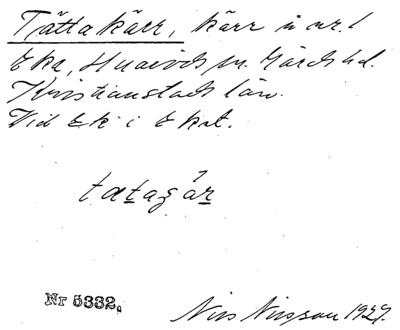 Tättakärr, kärr i nr. 1
Eka, Huaröds sn. Gärds hd.
Kristianstads län.
Vid Ek i Ekat.
tatagår
Nr 5332.
Nils Nilsson 1927.